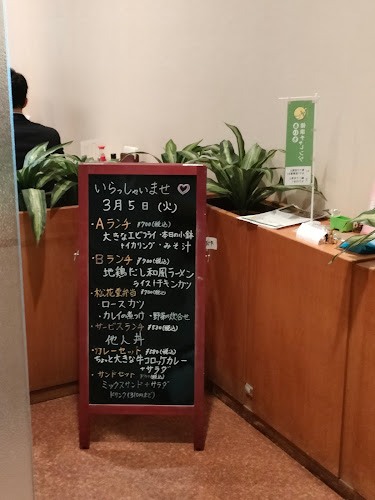 いらっしゃいませ♡
3月5日(火)
・Aランチ ¥700(税込)
大きなエビフライ・本日の小鉢
+イカリング・みそ汁
・Bランチ ¥700(税込)
地鶏だし和風ラーメン
ライス+チキンカツ
・松花堂弁当 (税込)
・ロースカツ
・カレイの煮つけ・野菜の炊合せ
・サービスランチ (税込)
他人丼
・カレーセット (税込)
ちょっと大きな牛コロッケカレー
+サラダ
・サンドセット (税込)
ミックスサンド+サラダ